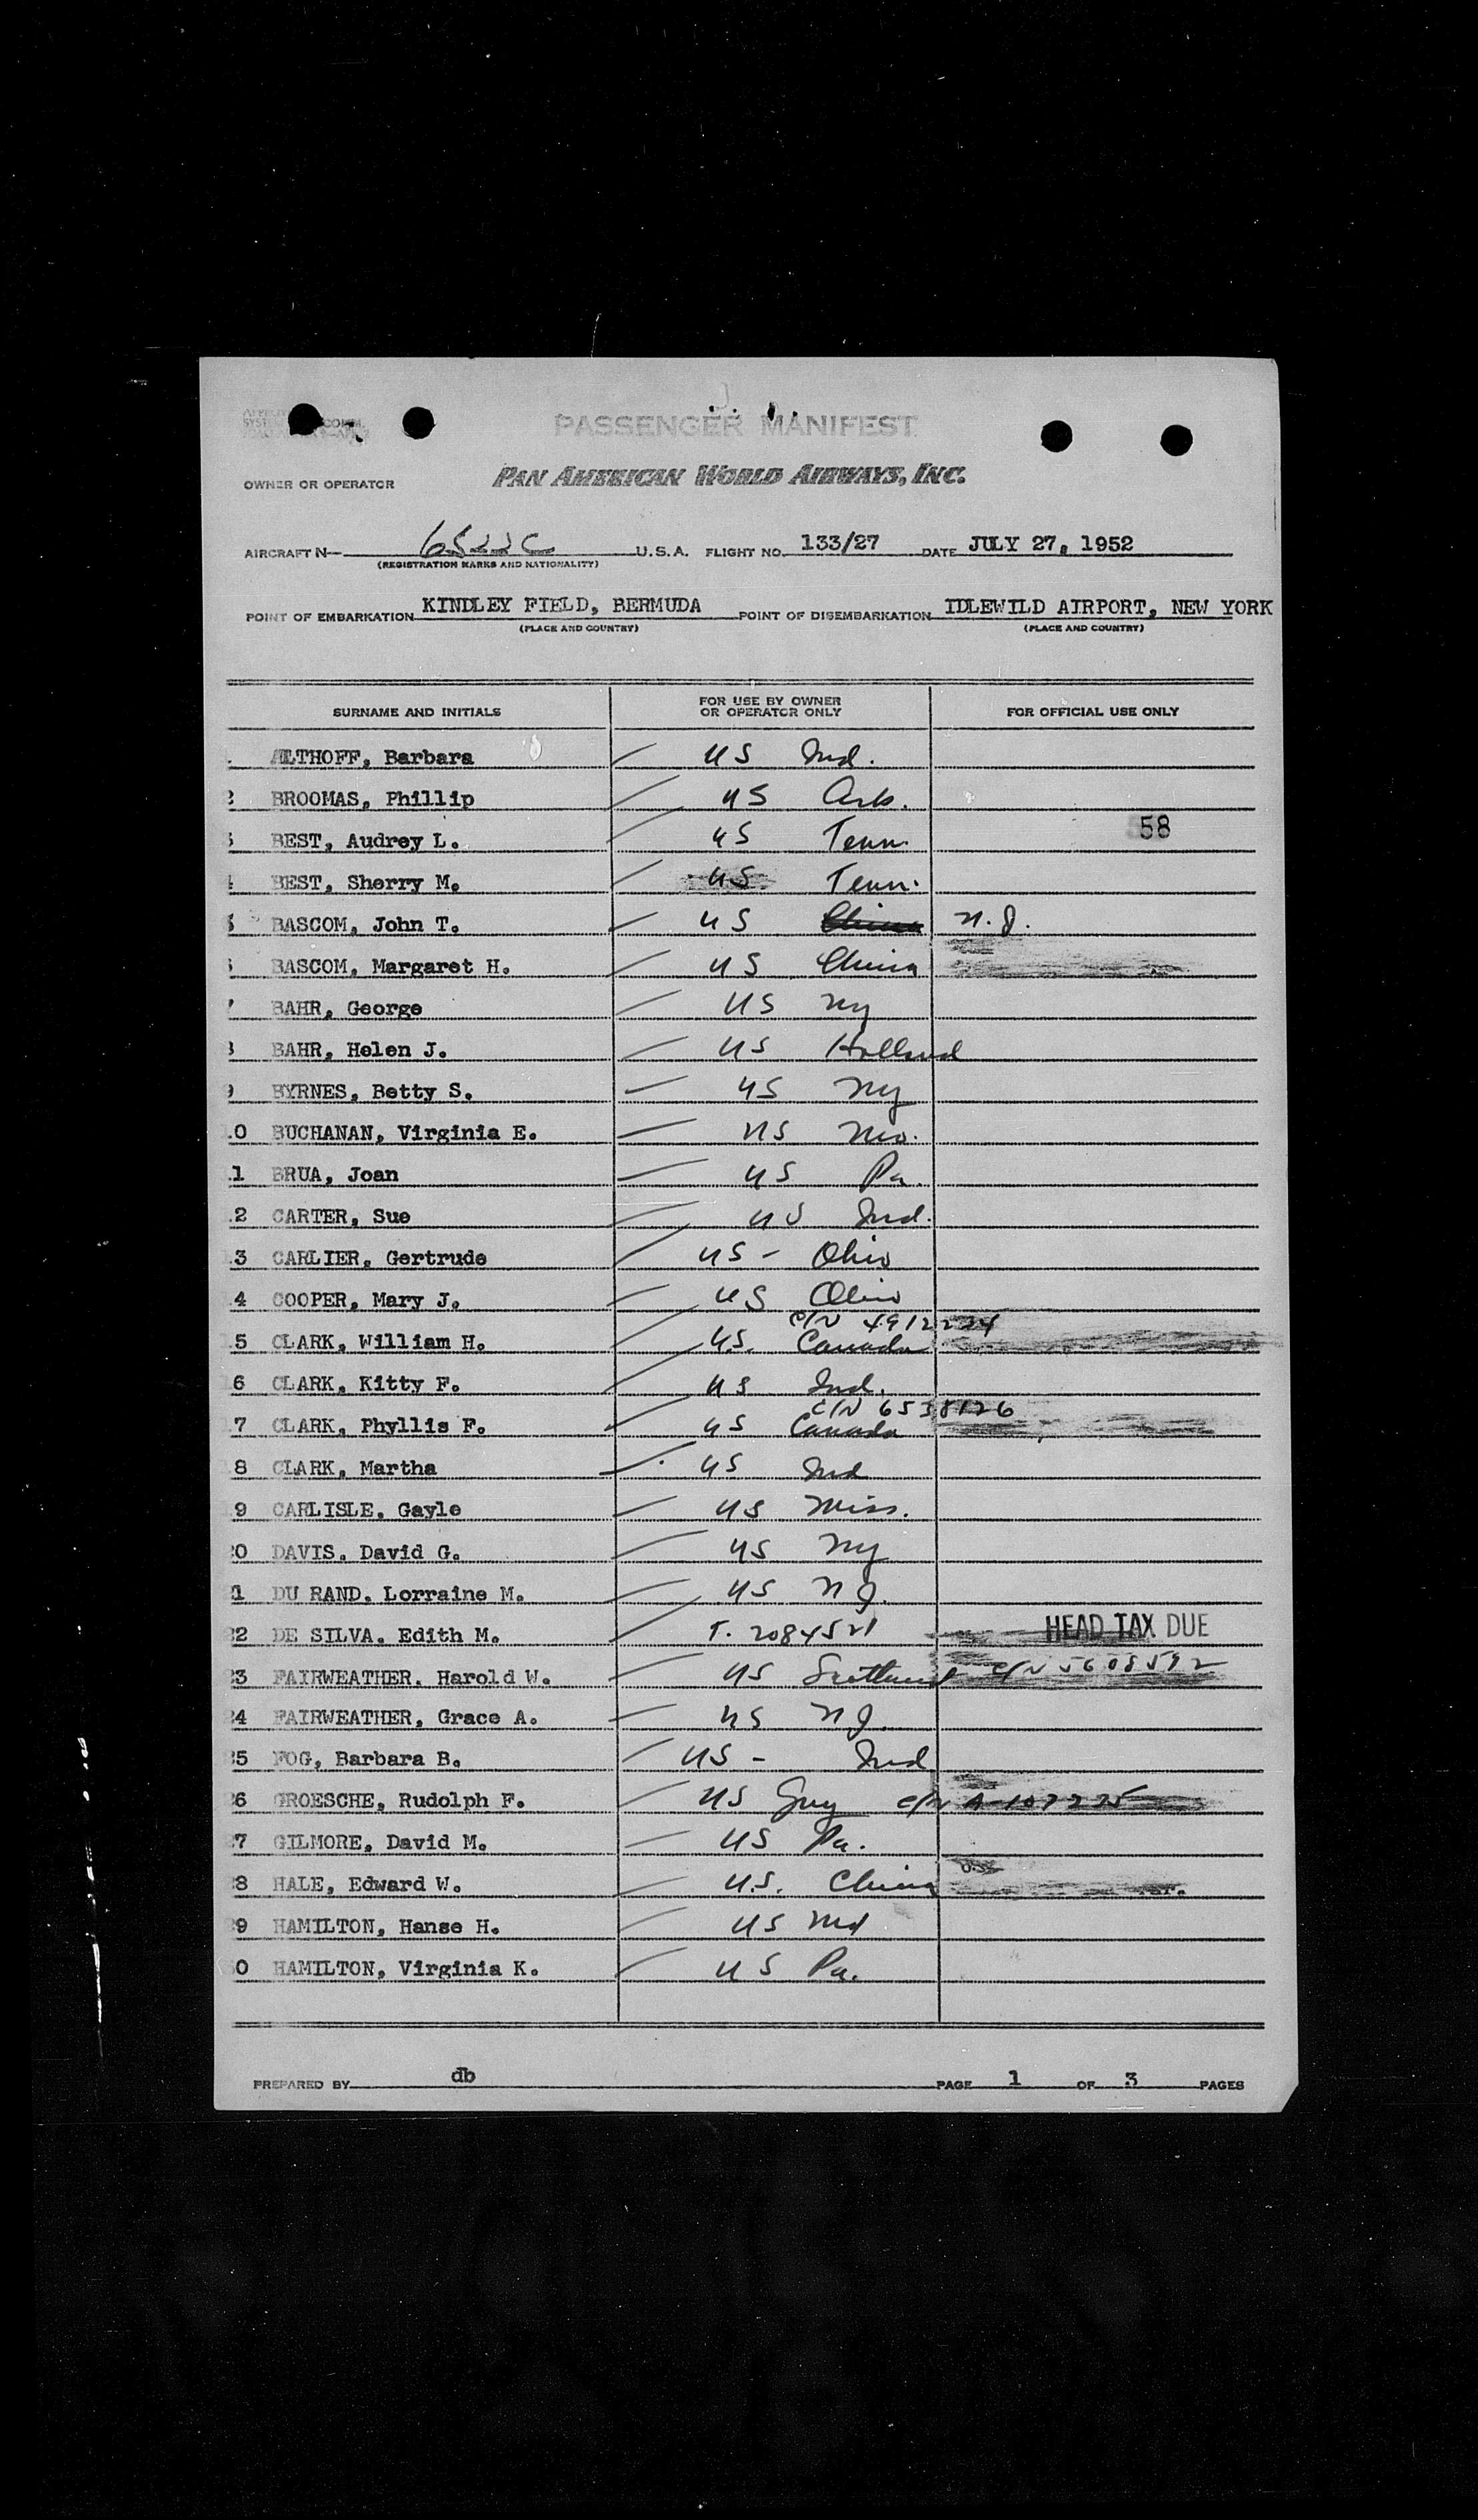 PASSENGER MANIFEST
OWNER OR OPERATOR PAN AMERICAN WORLD AIRWAYS, INC.
AIRCRAFT N— U.S.A. FLIGHT NO. 133/27 DATE JULY 27, 1952
(REGISTRATION MARKS AND NATIONALITY)
POINT OF EMBARKATION KINDLEY FIELD, BERMUDA POINT OF DISEMBARKATION IDLEWILD AIRPORT, NEW YORK
(PLACE AND COUNTRY) (PLACE AND COUNTRY)
SURNAME AND INITIALS FOR USE BY OWNER OR OPERATOR ONLY FOR OFFICIAL USE ONLY
ALTHOFF, Barbara US Ind.
2 BROOMAS, Phillip US Ark.
58
BEST, Audrey L. US Tenn.
BEST, Sherry M. US Tenn.
BASCOM, John T. US China N.J.
BASCOM, Margaret H. US China
BAHR, George US NY
BAHR, Helen J. US Holland
9 BYRNES, Betty S. US NY
10 BUCHANAN, Virginia E. US Mo.
1 BRUA, Joan US Pa.
2 CARTER, Sue US Ind.
3 CARLIER, Gertrude US - Ohio
4 COOPER, Mary J. US Ohio
C/N 4912224
5 CLARK, William H. U.S. Canada
6 CLARK, Kitty F. US Ind.
C/N 6538126
7 CLARK, Phyllis F. US Canada
8 CLARK, Martha US Ind
9 CARLISLE, Gayle US Miss.
20 DAVIS. David G. US NY
21 DU RAND. Lorraine M. US NJ.
22 DE SILVA. Edith M. T. 2084521 HEAD TAX DUE
23 FAIRWEATHER. Harold W. US Scotland C/N 5608592
24 FAIRWEATHER, Grace A. US NJ.
25 FOG, Barbara B. US - Ind
26 GROESCHE, Rudolph F. US Gny C/N A-107225
27 GILMORE, David M. US Pa.
28 HALE, Edward W. U.S. China
29 HAMILTON, Hanse H. US Md
30 HAMILTON, Virginia K. US Pa.
PREPARED BY db PAGE 1 OF 3 PAGES